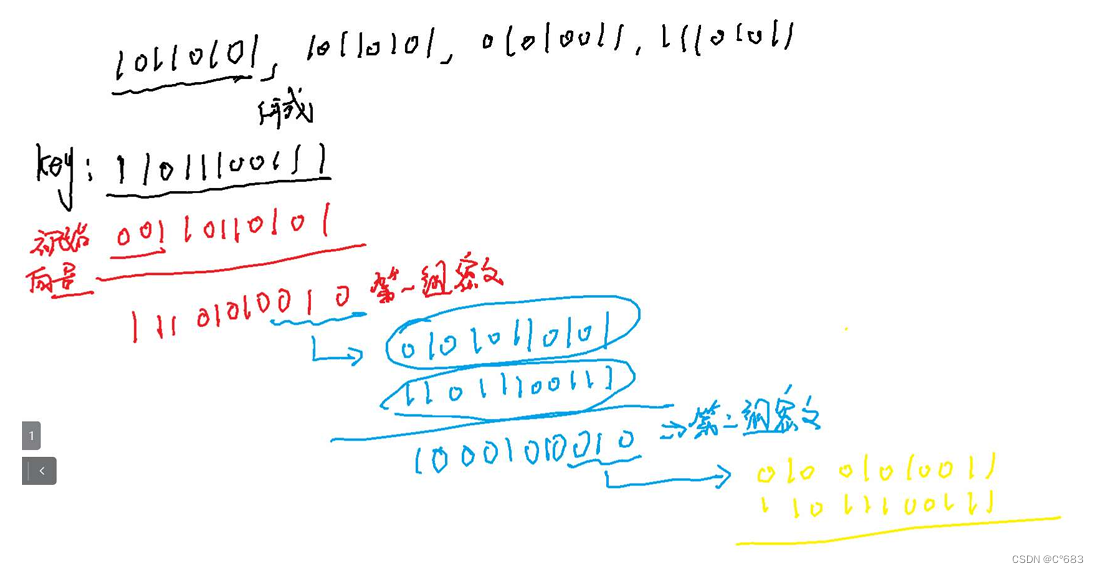 10110101, 10110101, 01010011, 11101011
key: 11011100111
初始 00110110101
向量
11101010010 第一组密文
01010110101
11011100111
10001010010 ⇒ 第二组密文
01001010011
11011100111
1
<
CSDN @C°683